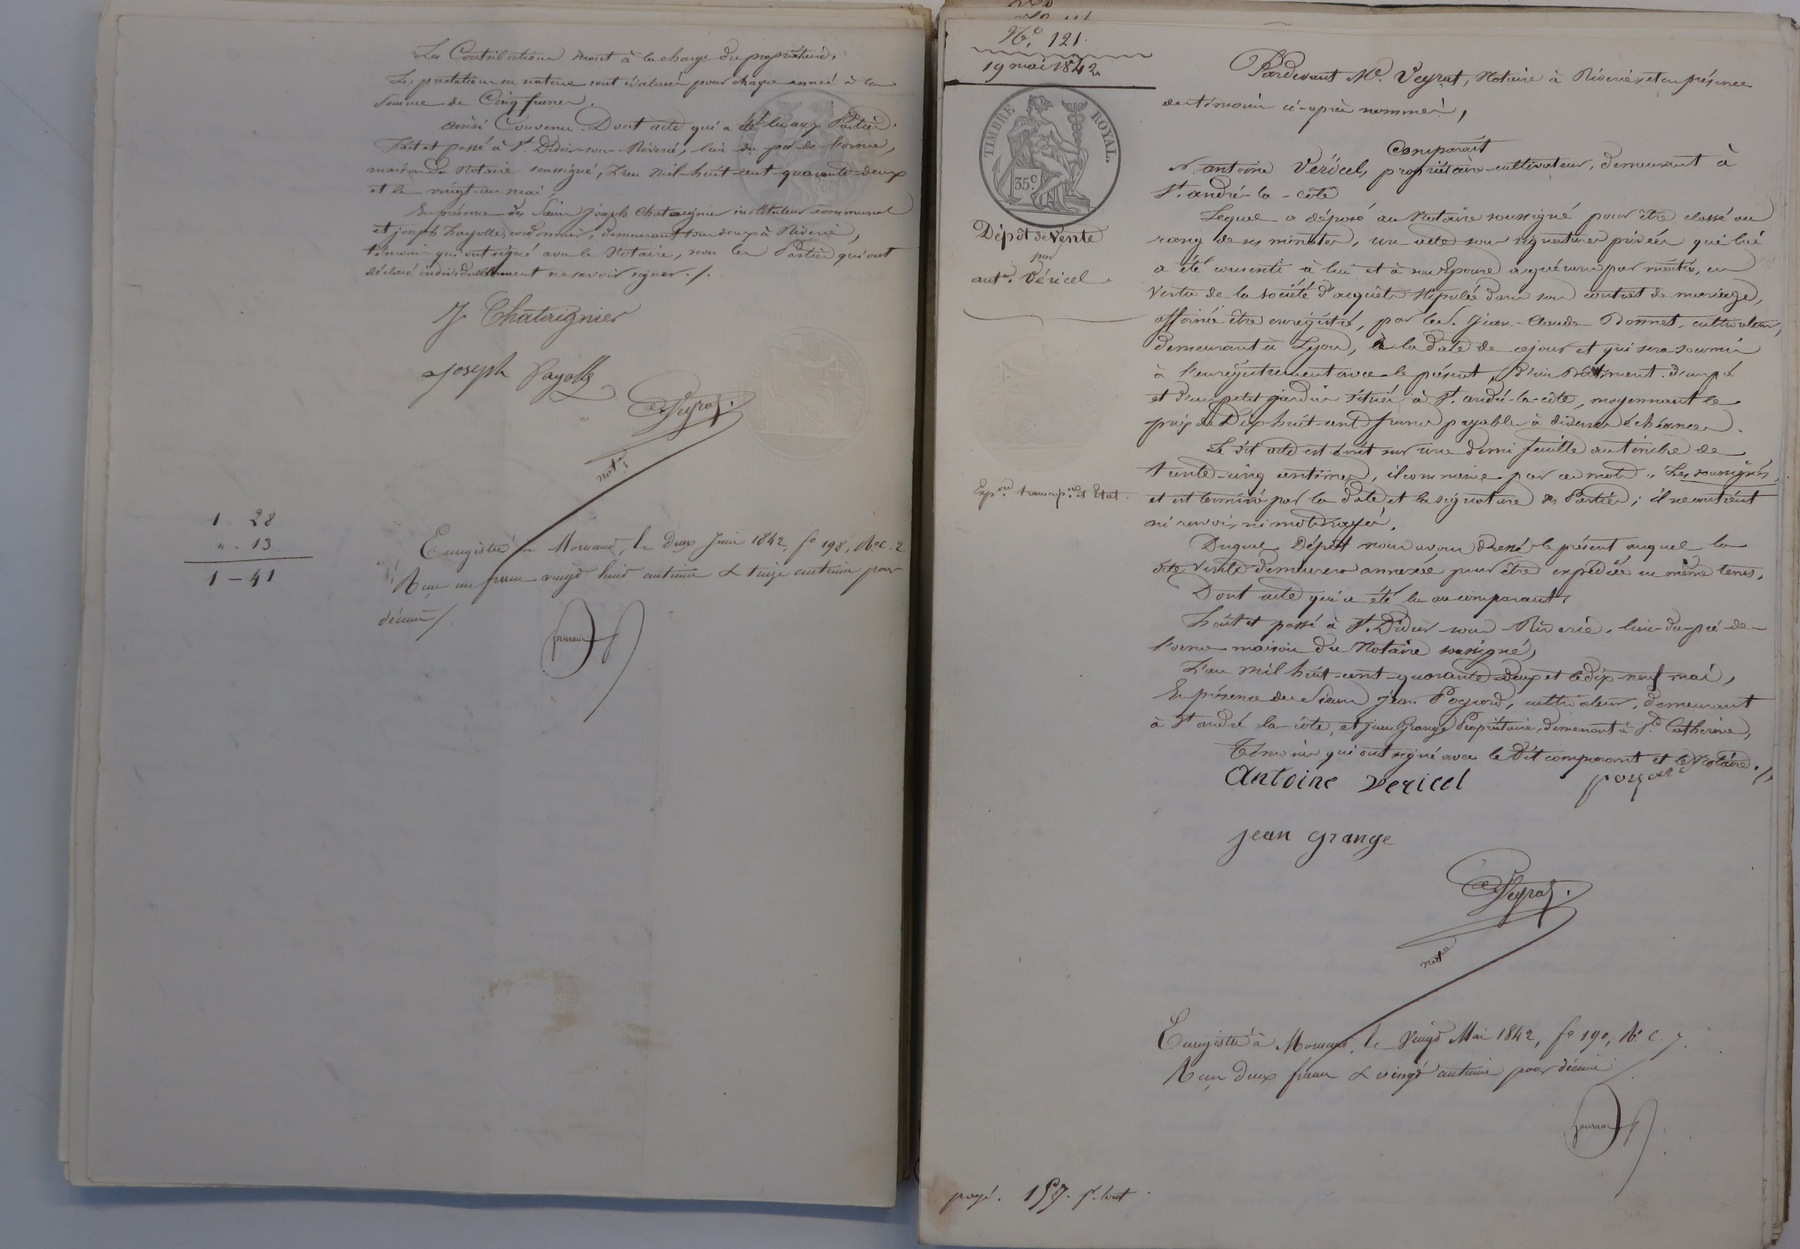 Les Contributions seront à la charge du propriétaire.
Les prestations en nature sont évaluées pour chaque année à la
somme de Cinq francs.
Ainsi Convenu. Dont acte qui a été lu aux Parties.
Fait et passé à St. Didier-sous-Riverie, lieu du pré de l'orme,
maison du Notaire soussigné, L'an Mil huit cent quarante-deux
et le vingt-un mai
En présence des Sieurs Joseph Chataignier instituteur communal
et joseph Fayolle, cordonnier, demeurant tous deux à Riverie,
témoins qui ont signé avec le Notaire, non les Parties qui ont
déclaré individuellement ne savoir signer. /.
J Chataignier
Joseph Fayolle
Veyrat
note
1 . 28
" . 13
1 - 41
Enregistré à Mornant, le Deux Juin 1842, fo 198, Ro. c. 2
Reçu un franc vingt huit centimes & treize centimes pour
décime /.
No. 121.
19 mai 1842
TIMBRE ROYAL.
35c
Dépôt de Vente
par
ant. Véricel
Expon. transcipon. et Etat.
Pardevant Me. Veyrat, Notaire à Riverie, et en présence
des témoins ci-après nommés,
Comparait
Sr. antoine Véricel, propriétaire-cultivateur, demeurant à
St. andré-la-côte
Lequel a déposé au Notaire soussigné pour être classé au
rang de ses minutes, un acte sous signatures privées qui lui
a été consenti à lui et à son Epouse acquéreurs par moitié, en
vertu de la société d'acquêts stipulée dans son contrat de mariage,
affirmé être enregistré, par le Sr. Jean-Claude Bonnet, cultivateur,
demeurant à Lyon, à la date de ce jour et qui sera soumis
à l'enregistrement avec le présent, d'un Bâtiment, d'un pré
et d'un petit jardin situés à St. andré-la-côte, moyennant le
prix de Dix huit cent francs payables à diverses échéances.
Le dit acte est écrit sur une demi feuille au timbre de
trente-cinq centimes, il commence par ces mots : Les soussignés,
et est terminé par la date et la signature des Parties ; il ne contient
ni renvoi, ni mots rayés.
Duquel Dépôt nous avons dressé le présent auquel la
dite vente demeurera annexée pour être expédiée en même tems.
Dont acte qui a été lu au comparant,
Fait et passé à St. Didier-sous-Riverie, lieu du pré de
l'orme maison du Notaire soussigné,
L'an Mil huit-cent-quarante-deux et le dix-neuf mai,
En présence des Sieurs Jean Poyard, cultivateur, demeurant
à St. andré la côte, et Jean Grange Propriétaire, demeurant à Ste. Catherine,
Témoins qui ont signé avec le dit comparant et le Notaire. /.
Antoine Vericel
jean Grange
Veyrat
note
Enregistré à Mornant, le Vingt Mai 1842, fo 190, Ro. c. 7.
Reçu deux francs & vingt centimes pour décime
payé. pr. tout.